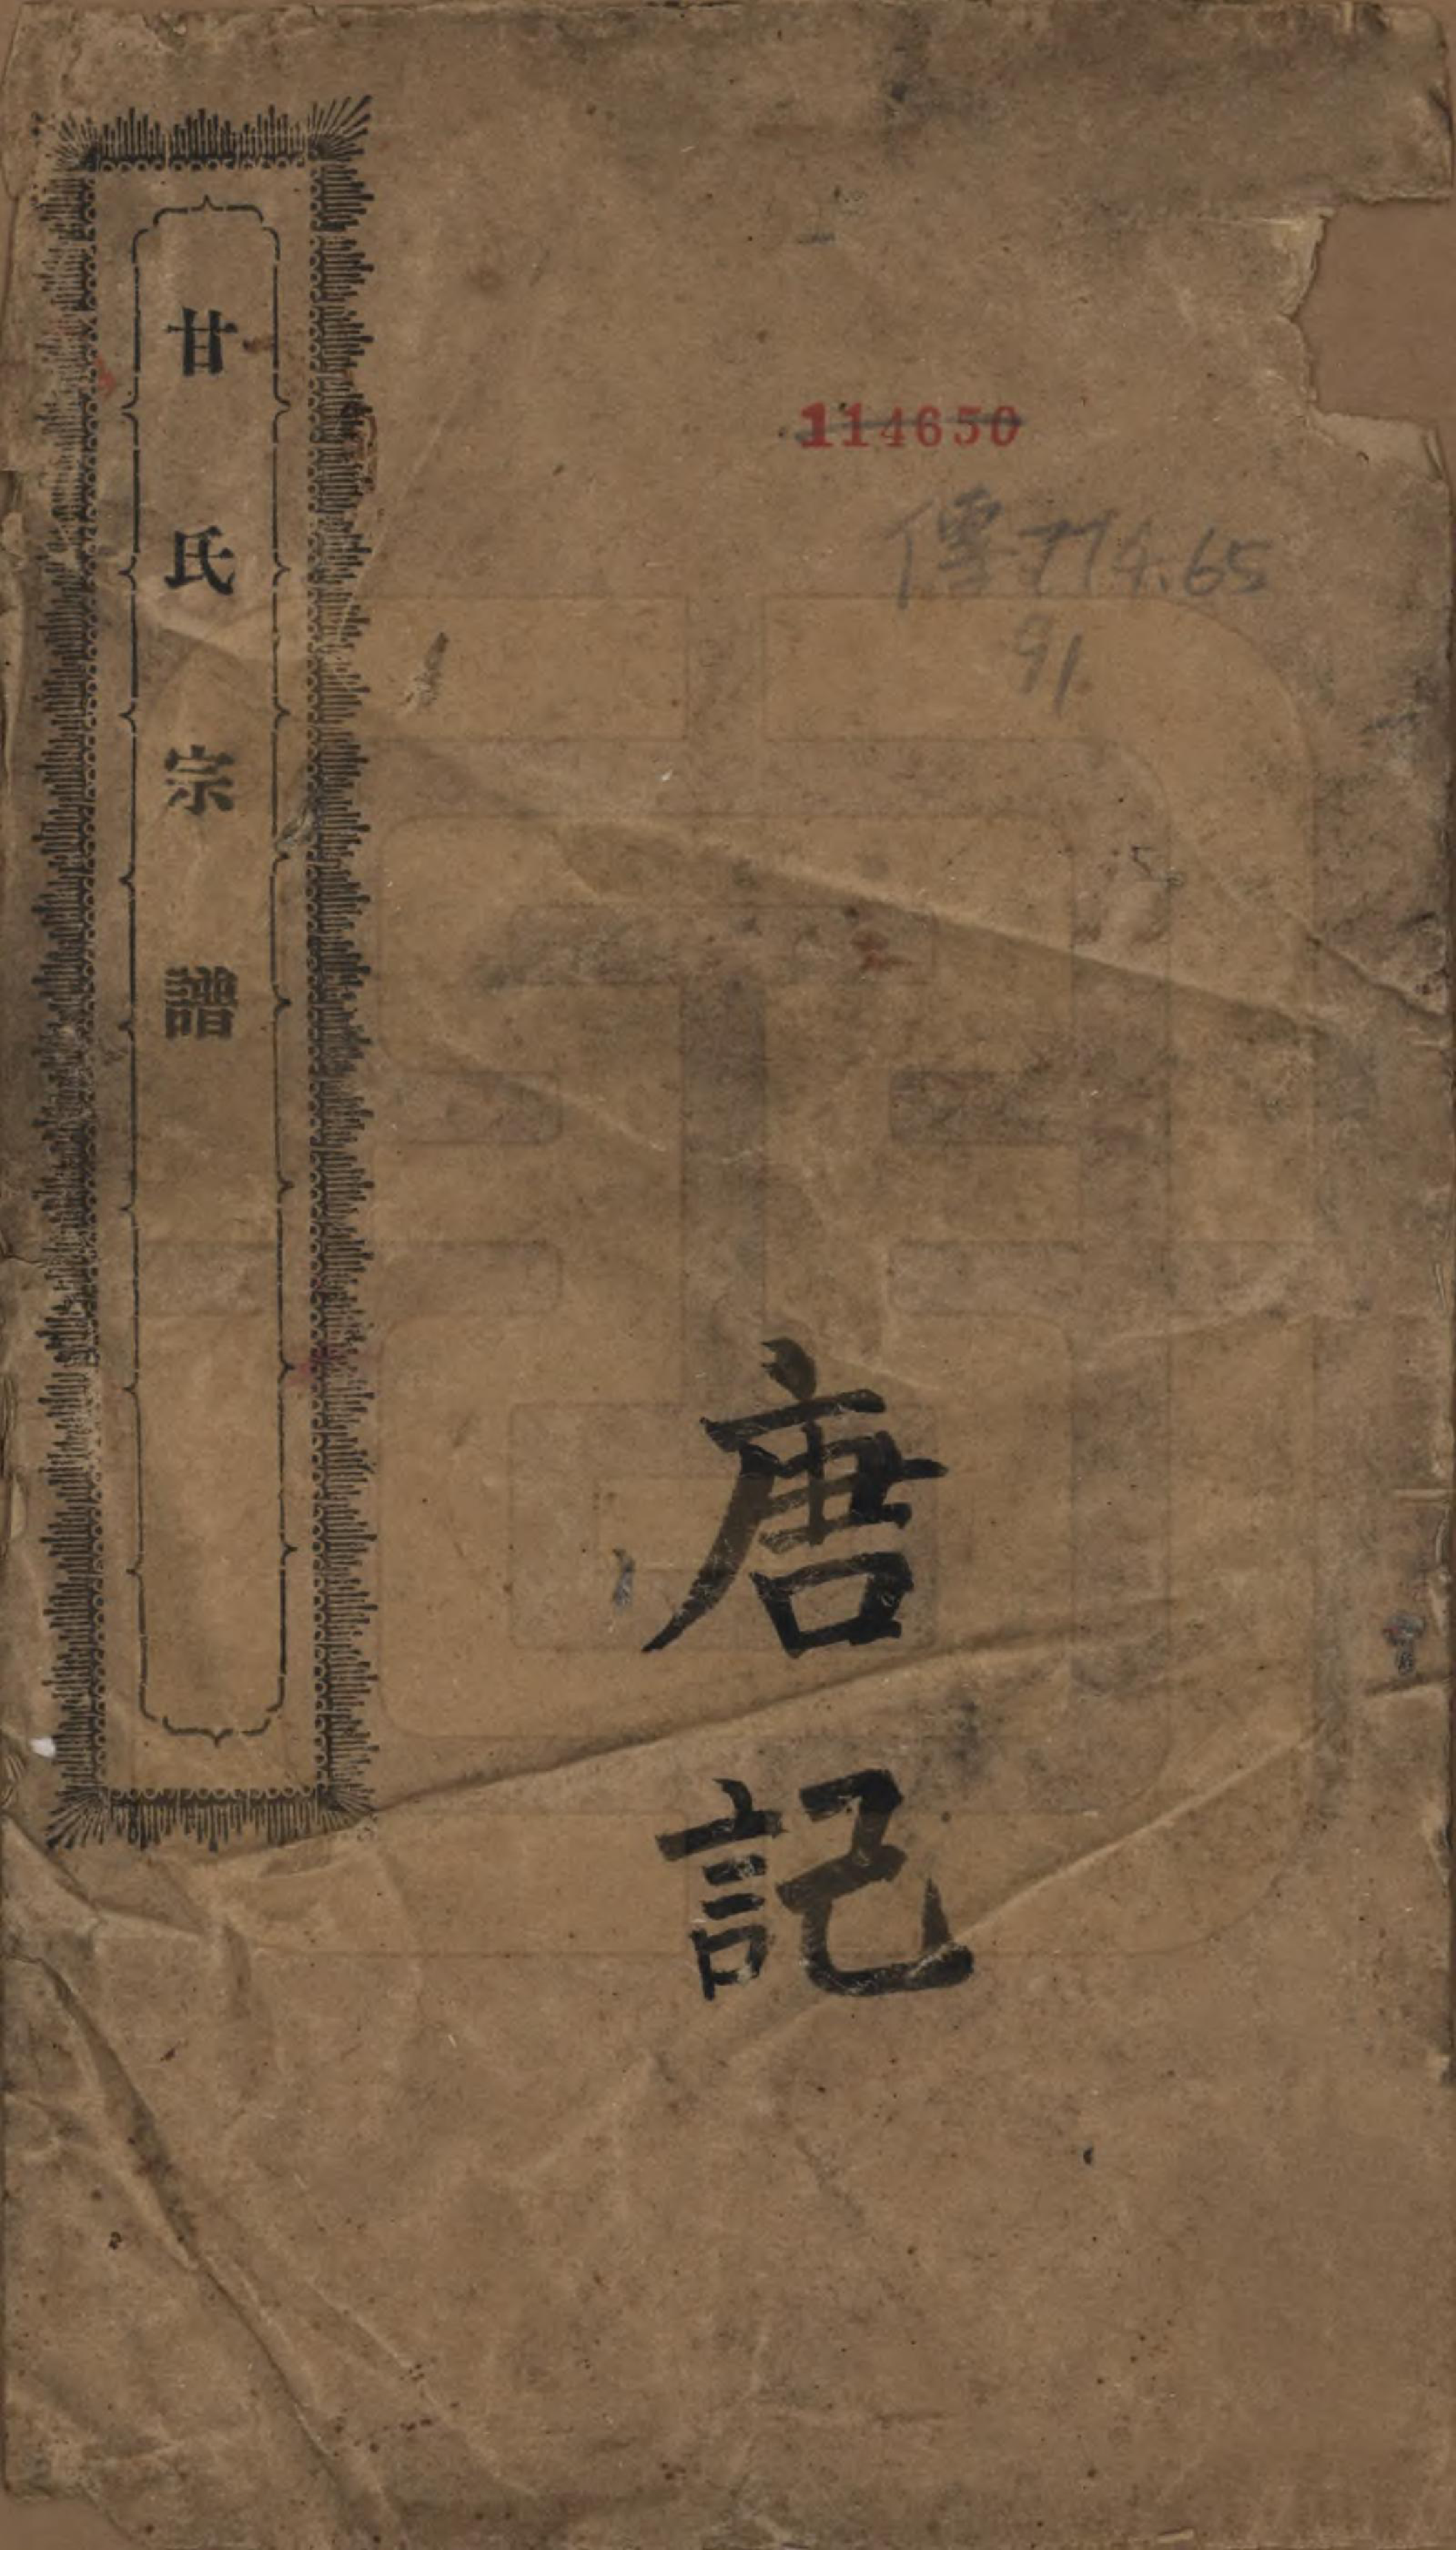 甘氏宗譜
114650
傳774.65
91
唐記